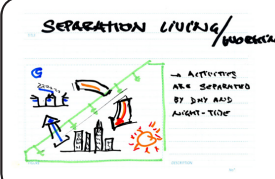 SEPARATION LIVING/WORKING
→ ACTIVITIES
ARE SEPARATED
BY DAY AND
NIGHT-TIDE